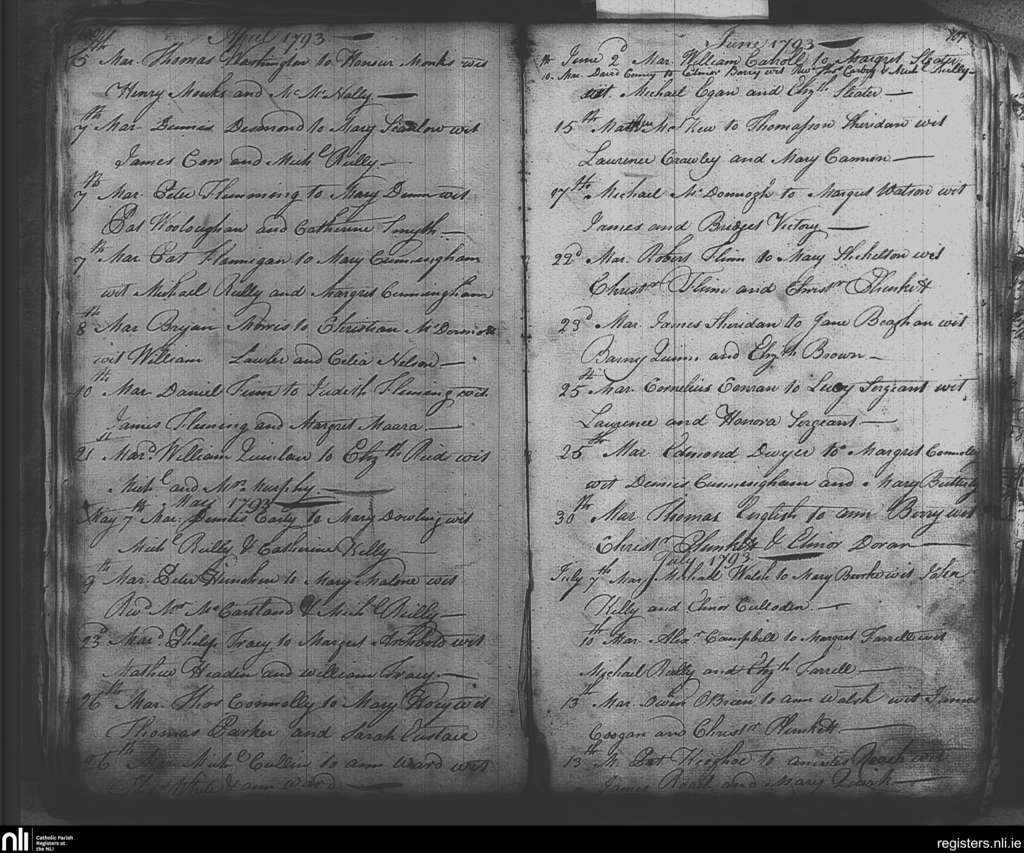 April 1793 —
5th Mar. Thomas Warthington to Honour Monks wit
Henry Monks and Mc McNally —
7th Mar. Dennis Desmond to Mary Scanlow wit
James Cow and Michl Reilly —
7th Mar. Peter Flemming to Mary Dunn wit
Pat Wooloughan and Catherine Smyth —
7th Mar Pat Flannigan to Mary Cunningham
wit Michael Reilly and Margret Cunningham
8th Mar Bryan Morris to Christian McDermott
wit William Lawler and Celia Nelson —
10th Mar Daniel Finn to Judith Fleming wit
James Fleming and Margret Maara —
21st Mard William Quinlan to Elizth Reid wit
Michl and Mrs Murphy —
May 1793
May 7th Mar. Dennis Early to Mary Dowling wit
Michl Reilly & Catherine Kelly —
9th Mar. Peter to Mary Malone wit
Revd Mr McCartland & Michl Reilly —
23d Mard Philip Tracy to Margret Archbold wit
Mathew Headen and William Tracy —
26th Mar. Thos Connolly to Mary Hoey wit
Thomas Parker and Sarah Eustace
26th Mar Michl Cullin to ann ward wit
White & ann ward —
June 1793 —
June 2d Mar. William Carroll to Margret Slater
10. Mar. David Emery to Elinor Barry wit Revd Thos Corboy & Michl Reilly
wit. Michael Egan and Elizth Slater —
15th Mathew McKew to Thomasson Sheridan wit
Laurence Crawley and Mary Cannon —
17th Michael McDonnogh to Margret Watson wit
James and Bridget Victory —
22d Mar. Robert Flinn to Mary Shekelton wit
Christr Flinn and Christr Plunkett
23d Mar. James Sheridan to Jane Beaghan wit
Barny Quinn and Elizth Brown —
25th Mar. Cornelius Conran to Lucy Sergeant wit
Laurence and Honora Sergeant —
25th Mar Edmond Dwyer to Margret Connolly
wit Dennis Cunningham and Mary Butterly
30th Mar Thomas English to ann Berry wit
Christr Plunkett & Elinor Doran —
July 1793
July 7th Mar. Michall Walsh to Mary Burke wit John
Kelly and Elinor Culloden —
10th Mar. Alexr Campbell to Margret Farrell wit
Mychael Reilly and Elizth Farrell —
13th Mar. Owen OBrien to ann Walsh wit James
Coogan and Christr Plunkett —
13th M. Pat Kieghoe to Roach wit
James Roach and Mary Quirk —
nli
Catholic Parish
Registers at
the NLI
registers.nli.ie